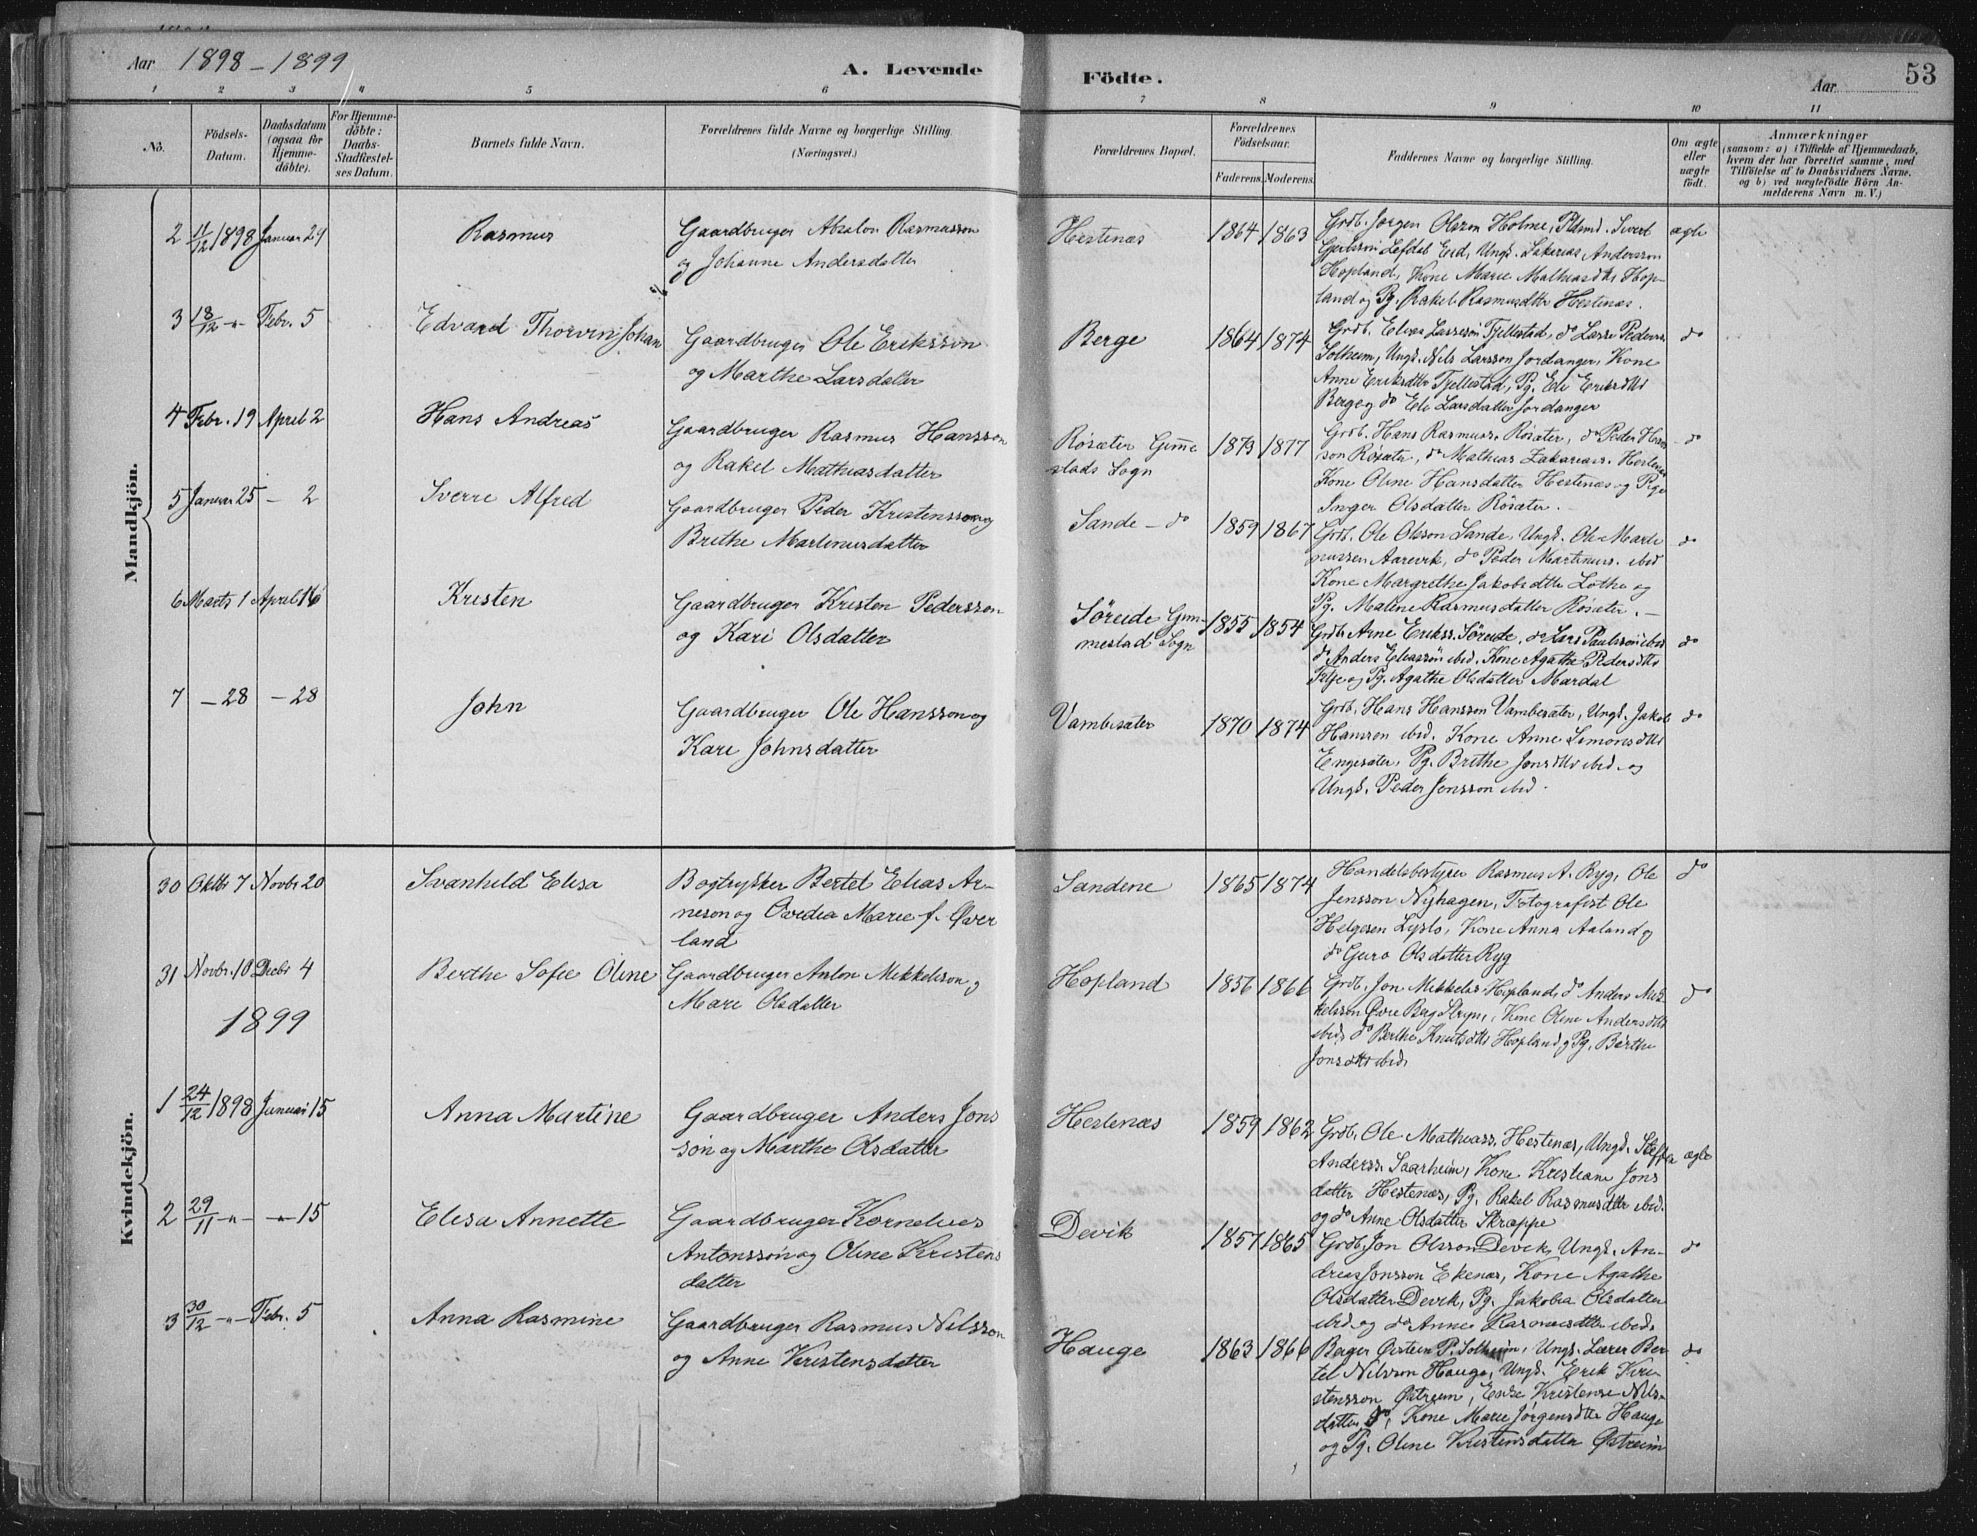 Aar 1898-1899
A. Levende Födte.
Aar
53
1 2 3 4 5 6 7 8 9 10 11
No.
Födsels-
Datum.
Daabsdatum
(ogsaa for
Hjemme-
döbte).
For Hjemme-
döbte:
Daabs-
Stadfæstel-
ses Datum.
Barnets fulde Navn.
Forældrenes fulde Navne og borgerlige Stilling.
(Næringsvei.)
Forældrenes Bopæl.
Forældrenes
Födselsaar.
Faderens. Moderens.
Faddernes Navne og borgerlige Stilling.
Om ægte
eller
uægte
födt.
Anmærkninger
(saasom: a) i Tilfælde af Hjemmedaab,
hvem der har forrettet samme, med
Tilföielse af to Daabsvidners Navne,
og b) ved uægtefödte Börn An-
melderens Navn m. V.)
Mandkjön.
2 11/12 1898 Januar 29 Rasmus
Gaardbruger Absalon Rasmusson
og Johanne Andersdatter
Hestenæs 1864 1863
Grdb. Jørgen Olsson Holme, Sivert
Lefdal Eid, Ungk. Zakarias Andersson
Hopland, Kone Marie Mathiasdtr Hop-
land og Pg. Rakel Rasmusdtr Hestenæs.
ægte
3 18/12 -"- Febr. 5 Edvard Thorvin Johan
Gaardbruger Ole Eriksson
og Marthe Larsdatter
Berge 1864 1874
Grdb. Elias Lassesøn Fjellestad, do Lasse Peders.
Solheim, Ungk. Nils Larsson Jordanger, Kone
Anne Eriksdtr Fjellestad, Pg. Eli Eriksdtr
Berge og do Eli Larsdatter Jordanger
do
4 Febr. 19 April 2 Hans Andreas
Gaardbruger Rasmus Hansson
og Rakel Mathiasdatter
Røsæter Gimme
stads Sogn
1873 1877
Grdb. Hans Rasmuss. Røsæter, do Peder Hans
son Røsæter, do Mathias Zakariass. Hestenæs
Kone Oline Hansdatter Hestenæs og Pige
Inger Olsdatter Røsæter.
do
5 Januar 25 - 2 Sverre Alfred
Gaardbruger Peder Kristensson og
Brithe Martinusdatter
Sande - do 1859 1867
Grdb. Ole Olsson Sande, Ungk. Ole Marti
nussen Aarevik, do Peder Martinuss. ibid
Kone Margrethe Jakobsdtr Lothe og
Pg. Maline Rasmusdatter Røsæter.
do
6 Marts 1 April 16 Kristen
Gaardbruger Kristen Pedersson
og Kari Olsdatter
Søreide Gim-
mestad Sogn
1855 1854
Grdb. Arne Erikss. Søreide, do Lars Paulsson ibid
do Anders Eliassøn ibid. Kone Agathe Pedersdtr
og Pg. Agathe Olsdatter Mardal
do
7 - 28 - 28 John
Gaardbruger Ole Hansson og
Kari Johnsdatter
Vambesæter 1870 1874
Grdb. Hans Hansson Vambesæter, Ungk. Jakob
Hansson ibid. Kone Anne Simonsdtr
Engesæter, Pg. Brithe Jonsdtr ibid. og
Ungk. Peder Jonsson ibid.
do
Kvindekjön.
30 Oktbr 7 Novbr 20 Svanhild Elisa
Bogtrykker Bertel Elias Ar-
neson og Ovedia Marie f. Øver
land
Sandene 1865 1874
Handelsbestyrer Rasmus A. Ryg, Ole
Jensson Nyhagen, Fotografist Ole
Helgesen Lyslo, Kone Anna Aaland og
do Guro Olsdatter Ryg
do
31 Novbr. 10 Decbr 4 Berthe Sofie Oline
Gaardbruger Anton Mikkelson og
Mari Olsdatter
Hopland 1856 1866
Grdb. Jon Mikkels. Hopland, do Anders Mik
kelsson Øvre Berg Stryn, Kone Oline Andersdtr
ibid, do Berthe Knutsdtr Hopland og Pg. Berthe
Jonsdtr ibid.
do
1899
1 24/12 1898 Januar 15 Anna Martine
Gaardbruger Anders Jons
søn og Marthe Olsdatter
Hestenæs 1859 1862
Grdb. Ole Mathiass. Hestenæs, Ungk. Steffen
Anderss. Saarheim, Kone Kristiane Jons
datter Hestenæs, Pg. Rakel Rasmusdtr ibid.
og do Anne Olsdatter Skroppe
ægte
2 29/11 -"- -"- 15 Elisa Annette
Gaardbruger Kornelius
Antonssøn og Oline Kristens
datter
Devik 1857 1865
Grdb. Jon Olsson Devik, Ungk. An-
dreas Jonsson Ekenæs, Kone Agathe
Olsdatter Devik, Pg. Jakobia Olsdatter
ibid og do Anne Rasmusdtr ibid.
do
3 30/12 -"- Febr. 5 Anna Rasmine
Gaardbruger Rasmus Nilsson
og Anne Kristensdatter
Hauge 1863 1866
Bager Østein P. Solheim, Ungk. Lærer Ber
tel Nilsson Hauge, Ungk. Erik Kri-
stensson Østreim, Enke Kristense Nils-
datter do, Kone Marie Jørgensdtr Hauge
og Pg. Oline Kristensdatter Østreim
do